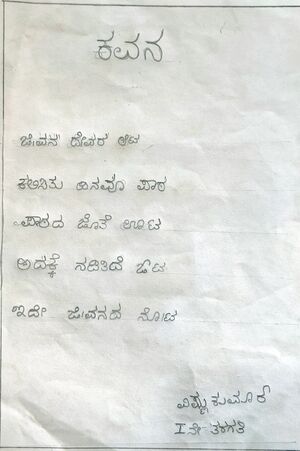 ಕವನ
ಜೀವನ ದೇವರ ಆಟ
ಕಲಿಬೇಕು ದಿನವೂ ಪಾಠ
ಪಾಠದ ಜೊತೆ ಊಟ
ಅದಕ್ಕೆ ನಡಿತಿದೆ ಓಟ
ಇದೇ ಜೀವನದ ನೋಟ
ವಿಷ್ಣುಕುಮಾರ
I ನೇ ತರಗತಿ